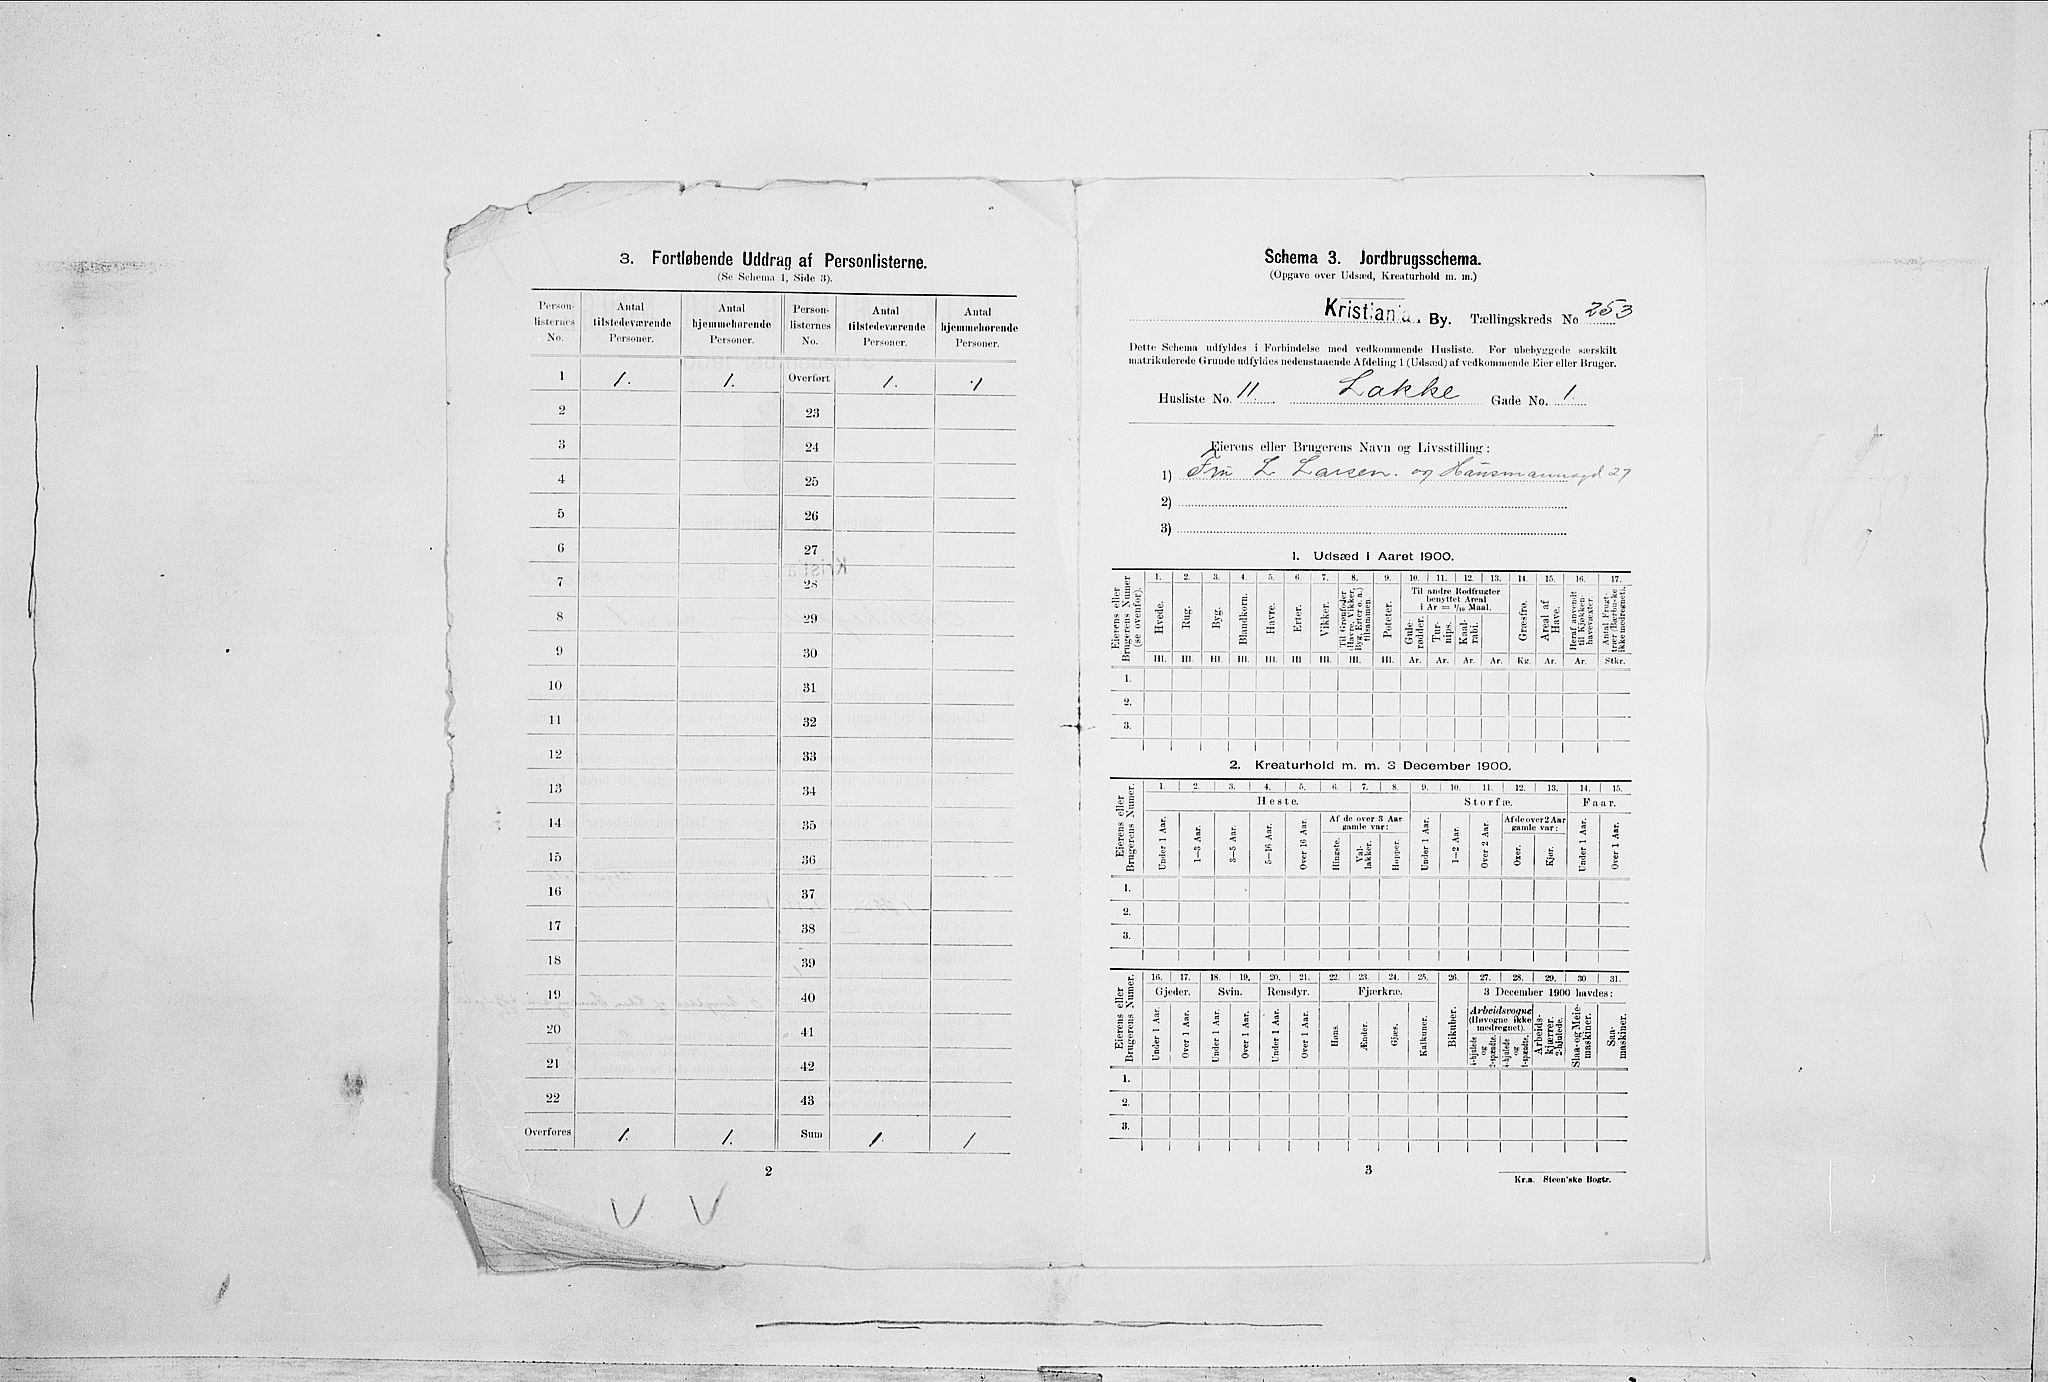 3. Fortløbende Uddrag af Personlisterne.
(Se Schema 1, Side 3).
Person-listernes No. | Antal tilstedeværende Personer. | Antal hjemmehørende Personer. | Person-listernes No. | Antal tilstedeværende Personer. | Antal hjemmehørende Personer.
1 | 1. | 1. | Overført | 1. | 1
2 | 23
3 | 24
4 | 25
5 | 26
6 | 27
7 | 28
8 | 29
9 | 30
10 | 31
11 | 32
12 | 33
13 | 34
14 | 35
15 | 36
16 | 37
17 | 38
18 | 39
19 | 40
20 | 41
21 | 42
22 | 43
Overføres | 1. | 1. | Sum | 1. | 1
2
Schema 3. Jordbrugsschema.
(Opgave over Udsæd, Kreaturhold m. m.)
Kristiania. By. Tællingskreds No. 253
Dette Schema udfyldes i Forbindelse med vedkommende Husliste. For ubebyggede særskilt
matrikulerede Grunde udfyldes nedenstaaende Afdeling 1 (Udsæd) af vedkommende Eier eller Bruger.
Husliste No. 11. Lakke Gade No. 1.
Eierens eller Brugerens Navn og Livsstilling:
1) Fru L Larsen. og Hausmannsgd 27
2)
3)
1. Udsæd i Aaret 1900.
Eierens eller Brugerens Numer (se ovenfor).
1. 2. 3. 4. 5. 6. 7. 8. 9. 10. 11. 12. 13. 14. 15. 16. 17.
Til andre Rodfrugter benyttet Areal i Ar = 1/10 Maal.
Hvede. Rug. Byg. Blandkorn. Havre. Erter. Vikker. Til Grønfoder (Havre, Vikker, Byg, Erter o. a.) tilsammen. Poteter. Gule-rødder. Tur-nips. Kaal-rabi. Græsfrø. Areal af Have. Heraf anvendt til Kjøkken-havevæxter. Antal Frugt-trær (Bærbuske ikke medregnet).
Hl. Hl. Hl. Hl. Hl. Hl. Hl. Hl. Hl. Ar. Ar. Ar. Ar. Kg. Ar. Ar. Stkr.
1.
2.
3.
2. Kreaturhold m. m. 3 December 1900.
Eierens eller Brugerens Numer.
1. 2. 3. 4. 5. 6. 7. 8. 9. 10. 11. 12. 13. 14. 15.
Heste. Storfæ. Faar.
Af de over 3 Aar gamle var: Af de over 2 Aar gamle var:
Under 1 Aar. 1—3 Aar. 3—5 Aar. 5—16 Aar. Over 16 Aar. Hingste. Val-lakker. Hopper. Under 1 Aar. 1—2 Aar. Over 2 Aar. Oxer. Kjør. Under 1 Aar. Over 1 Aar.
1.
2.
3.
Eierens eller Brugerens Numer.
16. 17. 18. 19. 20. 21. 22. 23. 24. 25. 26. 27. 28. 29. 30 31.
Gjeder. Svin. Rensdyr. Fjærkræ. 3 December 1900 havdes:
Arbeidsvogne (Høvogne ikke medregnet).
Under 1 Aar. Over 1 Aar. Under 1 Aar. Over 1 Aar. Under 1 Aar. Over 1 Aar. Høns. Ænder. Gjæs. Kalkuner. Bikuber. 4-hjulede og 2-spændte. 4-hjulede og 1-spændte. Arbeids-kjærrer. 2-hjulede. Slaa- og Meie-maskiner. Saa-maskiner.
1.
2.
3.
3
Kr.a. Steen'ske Bogtr.